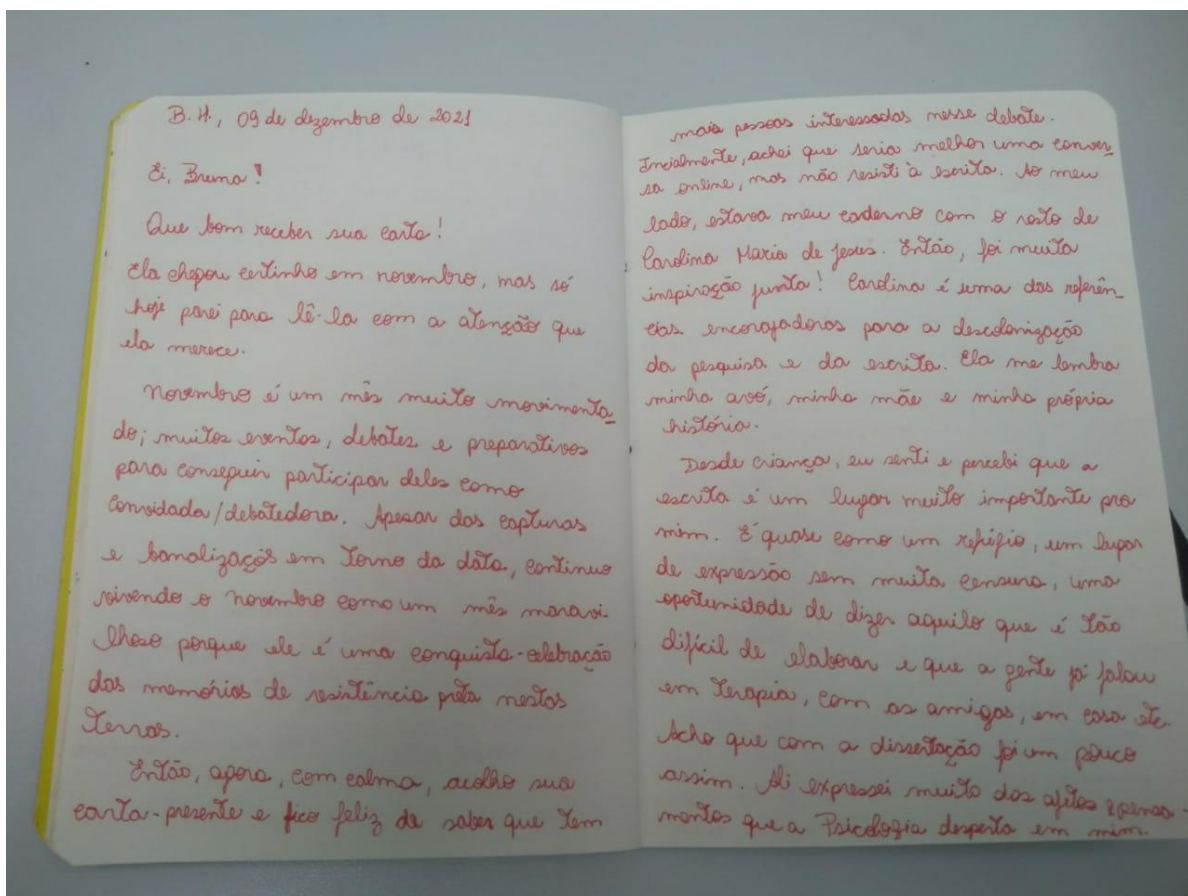 B.H., 09 de dezembro de 2021
Ei, Bruna!
Que bom receber sua carta!
Ela chegou certinho em novembro, mas só
hoje parei para lê-la com a atenção que
ela merece.
Novembro é um mês muito movimenta
do; muitos eventos, debates e preparativos
para conseguir participar deles como
convidada/debatedora. Apesar das capturas
e banalizaçõs em torno da data, continuo
vivendo o novembro como um mês maravi-
lhoso porque ele é uma conquista-celebração
das memórias de resistência preta nestas
terras.
Então, agora, com calma, acolho sua
carta-presente e fico feliz de saber que tem
mais pessoas interessadas nesse debate.
Incialmente, achei que seria melhor uma conver
sa online, mas não resisti à escrita. Ao meu
lado, estava meu caderno com o rosto de
Carolina Maria de Jesus. Então, foi muita
inspiração junta! Carolina é uma das referên
cias encorajadoras para a descolonização
da pesquisa e da escrita. Ela me lembra
minha avó, minha mãe e minha própria
história.
Desde criança, eu senti e percebi que a
escrita é um lugar muito importante pra
mim. É quase como um refúgio, um lugar
de expressão sem muita censura, uma
oportunidade de dizer aquilo que é tão
difícil de elaborar e que a gente já falou
em terapia, com as amigas, em casa etc.
Acho que com a dissertação foi um pouco
assim. Ali expressei muito dos afetos e pensa-
mentos que a Psicologia desperta em mim.